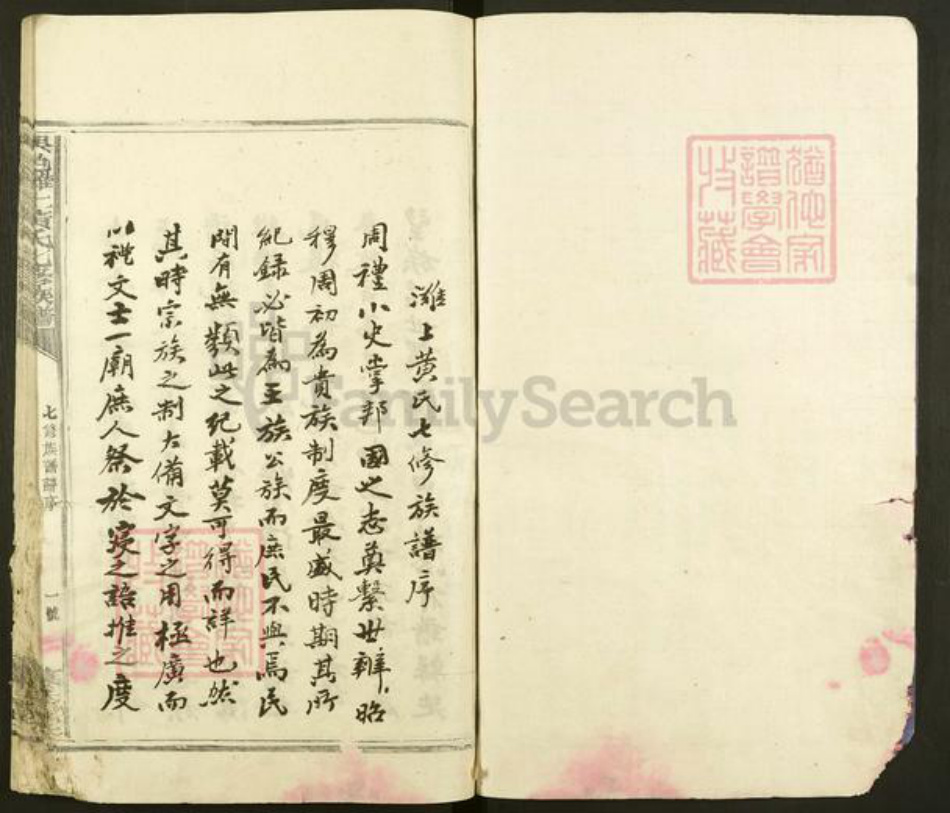 濰上黄氏七修族譜序
周禮小史掌邦國之志奠繫世辨昭
穆周初為貴族制度最盛時期其所
紀録必皆為王族公族而庶民不與焉民
間有無類此之紀載莫可得而詳也然
其時宗族之制大備文字之用極廣而
以禮文士一廟庶人祭於寢之語推之度
七修族譜
序
一號
譜學會
收藏
FamilySearch